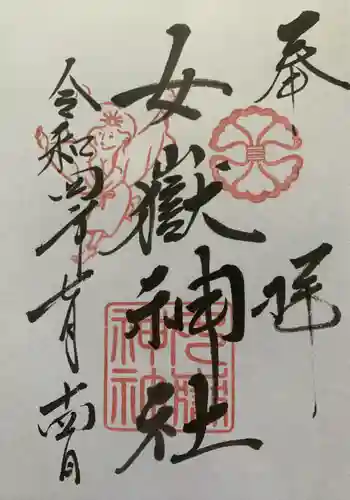 奉拝
女嶽神社
令和四年十一月十四日
女嶽神社